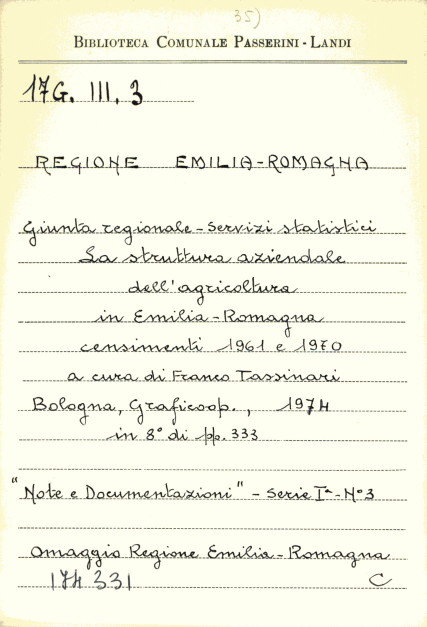 35)
BIBLIOTECA COMUNALE PASSERINI - LANDI
17G. III. 3
REGIONE EMILIA-ROMAGNA
Giunta regionale - Servizi statistici
La struttura aziendale
dell'agricoltura
in Emilia-Romagna
censimenti 1961 e 1970
a cura di Franco Tassinari
Bologna, Graficoop., 1974
in 8° di pp. 333
"Note e Documentazioni" - Serie Iª - N° 3
Omaggio Regione Emilia-Romagna
174331 C